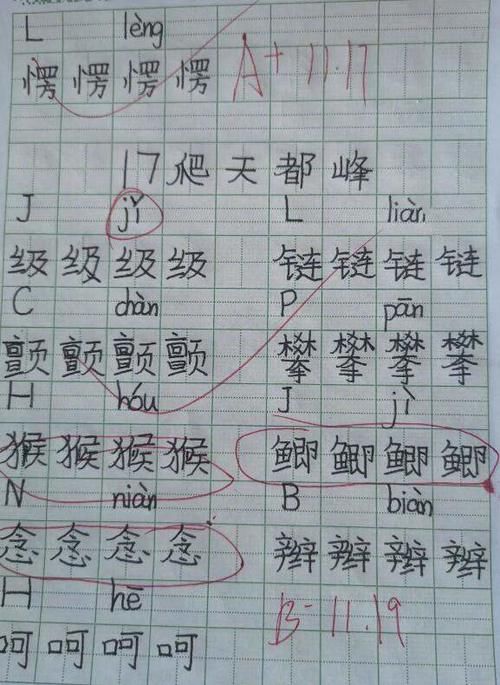 L lèng
愣 愣 愣 愣 A+ 11.17
17 爬 天 都 峰
J jǐ L liàn
级 级 级 级 链 链 链 链
C chàn P pān
颤 颤 颤 颤 攀 攀 攀 攀
H hóu J jì
猴 猴 猴 猴 鲫 鲫 鲫 鲫
N niàn B biàn
念 念 念 念 辫 辫 辫 辫
H hē B- 11.19
呵 呵 呵 呵